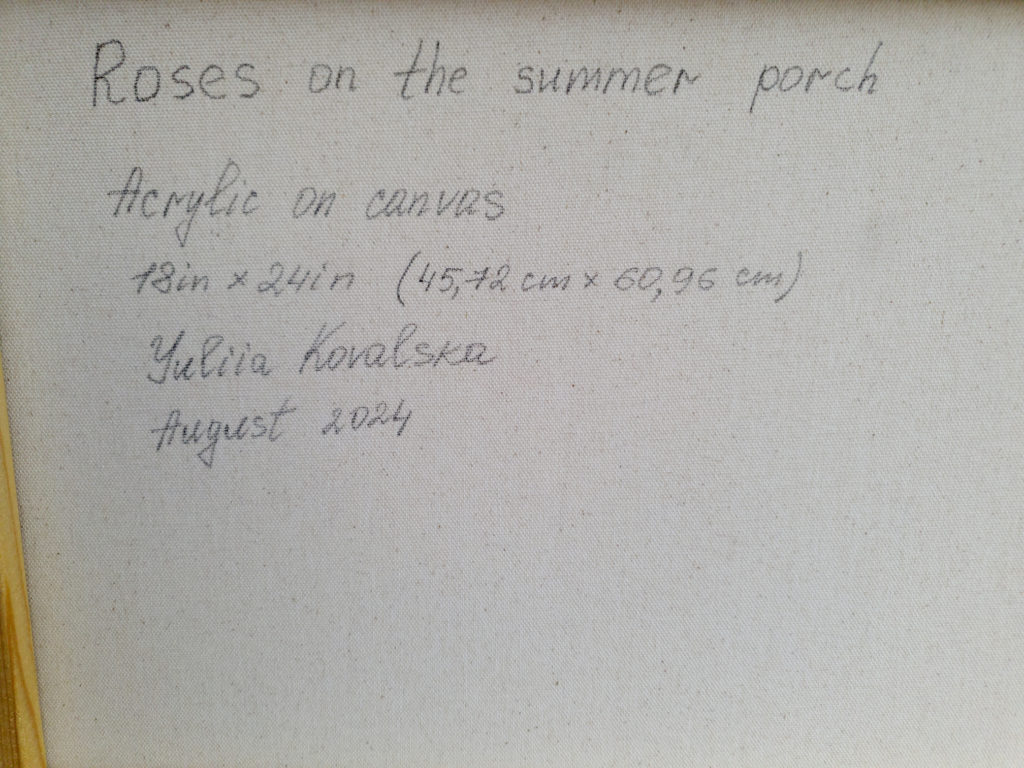 Roses on the summer porch
Acrylic on canvas
18in × 24in (45,72 cm × 60,96 cm)
Yuliia Kovalska
August 2024